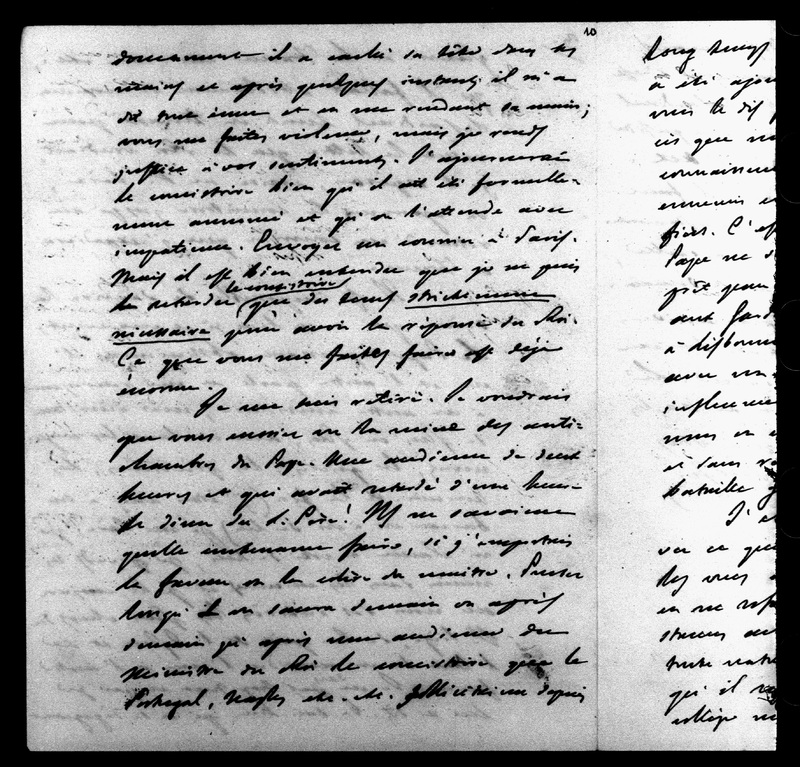 10
doucement il a caché sa tête dans ses
mains et après quelques instants il m'a
dit tout ému et en me rendant sa main;
vous me faites violence, mais je rends
justice à vos sentiments. J'ajournerai
le consistoire bien qu'il ait été formelle-
ment annoncé et qu'on l'attende avec
impatience. Envoyez un courrier à Paris.
Mais il est bien entendu que je ne puis
le consistoire
le retarder que du temps strictement
nécessaire pour avoir la réponse du Roi.
Ce que vous me faites faire est déjà
énorme.
Je me suis retiré. Je voudrais
que vous eussiez vu la mine des anti-
chambres du Pape. Une audience de deux
heures et qui avait retardé d'une heure
le diner du S. Père! Ils ne savaient
quelle contenance faire, si j'emportais
la faveur ou la colère du maître.
lorsqu'on saura demain ou après
demain qu'après une audience du
Ministre du Roi le consistoire que le
Portugal, Naples etc. etc. sollicitaient depuis
long temps
a été ajour
vous le dis
connaissan
ennemis
fiers. C'est
Pape ne
prêt pour
avec un
influence
nous en
et sans
bataille
J'
ver ce que
les vues
en me
toute
qu'il